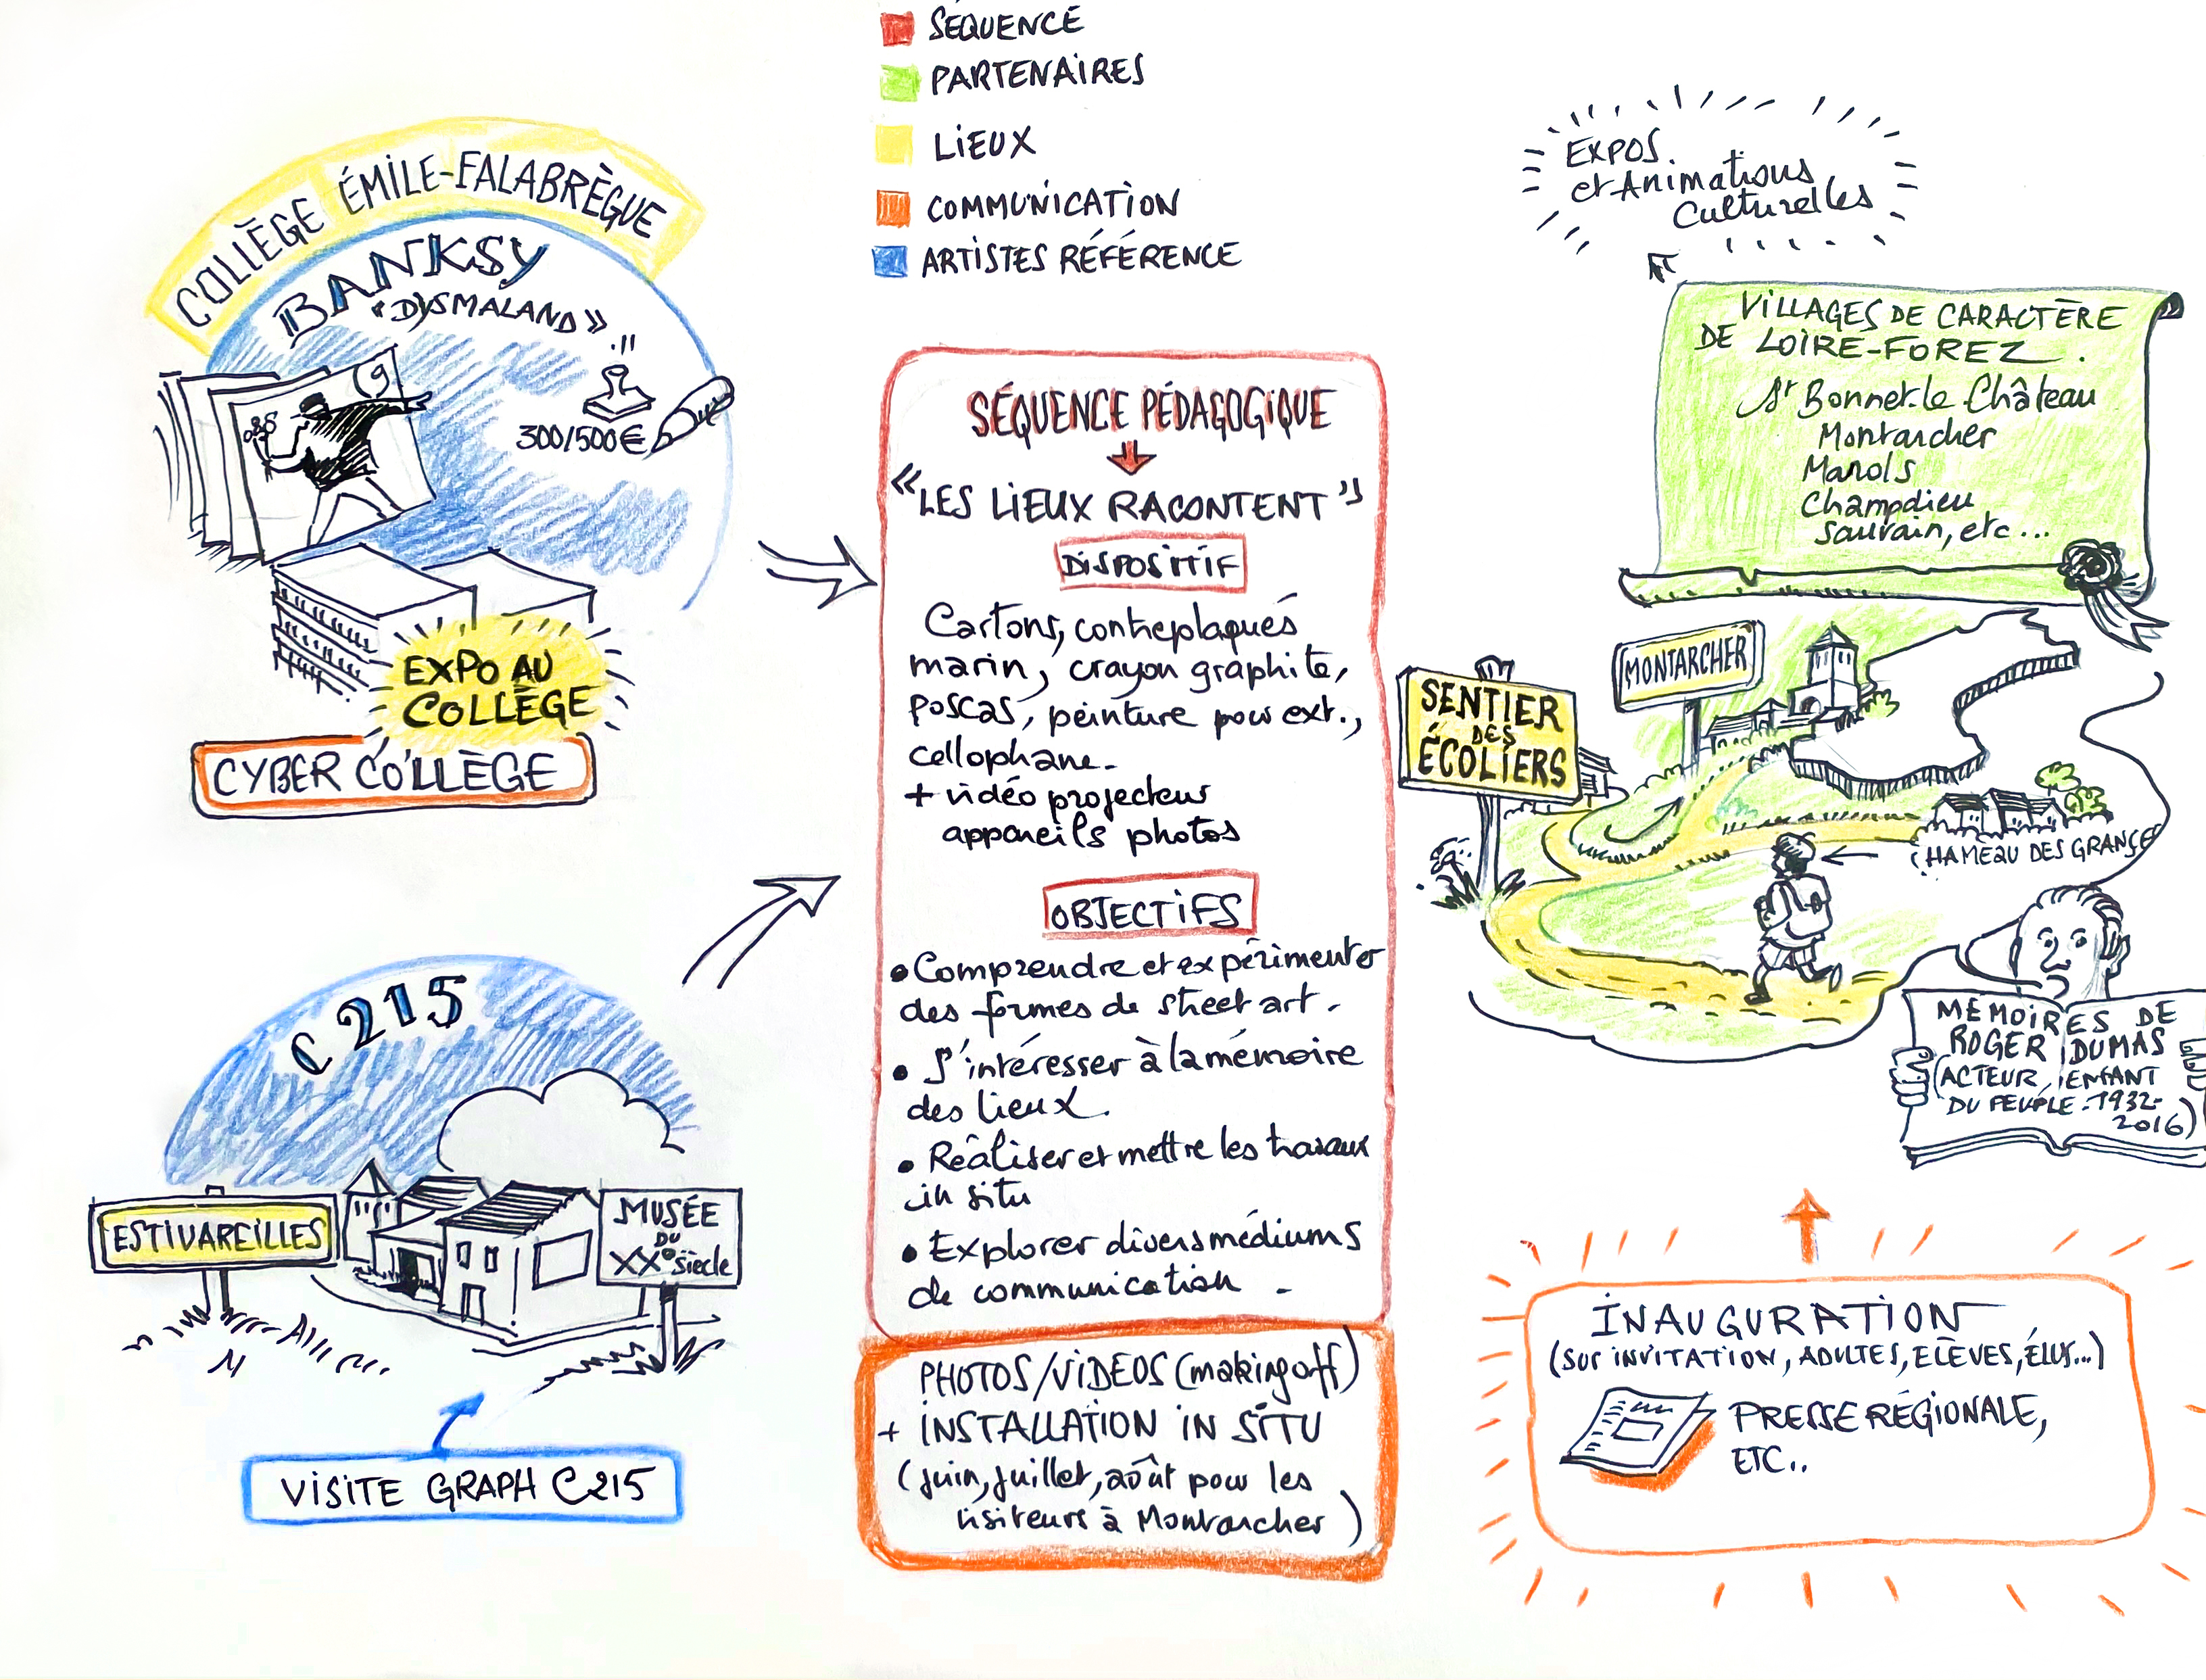 SÉQUENCE
PARTENAIRES
LIEUX
COMMUNICATION
ARTISTES RÉFÉRENCE
COLLÈGE ÉMILE-FALABRÈGUE
BANKSY
"DYSMALAND"
300/500€
EXPO AU
COLLÈGE
CYBER COLLÈGE
C215
ESTIVAREILLES
MUSÉE
DU
XXe siècle
VISITE GRAPH C215
SÉQUENCE PÉDAGOGIQUE
"LES LIEUX RACONTENT"
DISPOSITIF
Cartons, contreplaqués
marin, crayon graphite,
poscas, peinture pour ext.,
cellophane.
+ vidéo projecteur
appareils photos
OBJECTIFS
• Comprendre et expérimenter
des formes de street art.
• S'intéresser à la mémoire
des lieux.
• Réaliser et mettre les travaux
in situ
• Explorer divers médiums
de communication -
PHOTOS/VIDEOS (making off)
+ INSTALLATION IN SITU
(juin, juillet, août pour les
visiteurs à Montarcher)
EXPOS.
et Animations
Culturelles
VILLAGES DE CARACTÈRE
DE LOIRE-FOREZ.
St Bonnet-le Château
Montarcher
Marols
Champdieu
Sauvain, etc...
MONTARCHER
SENTIER
DES
ÉCOLIERS
(HAMEAU DES GRANGES
MEMOIRES DE
ROGER DUMAS
(ACTEUR, ENFANT
DU PEUPLE - 1932-
2016)
INAUGURATION
(SUR INVITATION, ADULTES, ELÈVES, ÉLUS...)
PRESSE RÉGIONALE,
ETC..